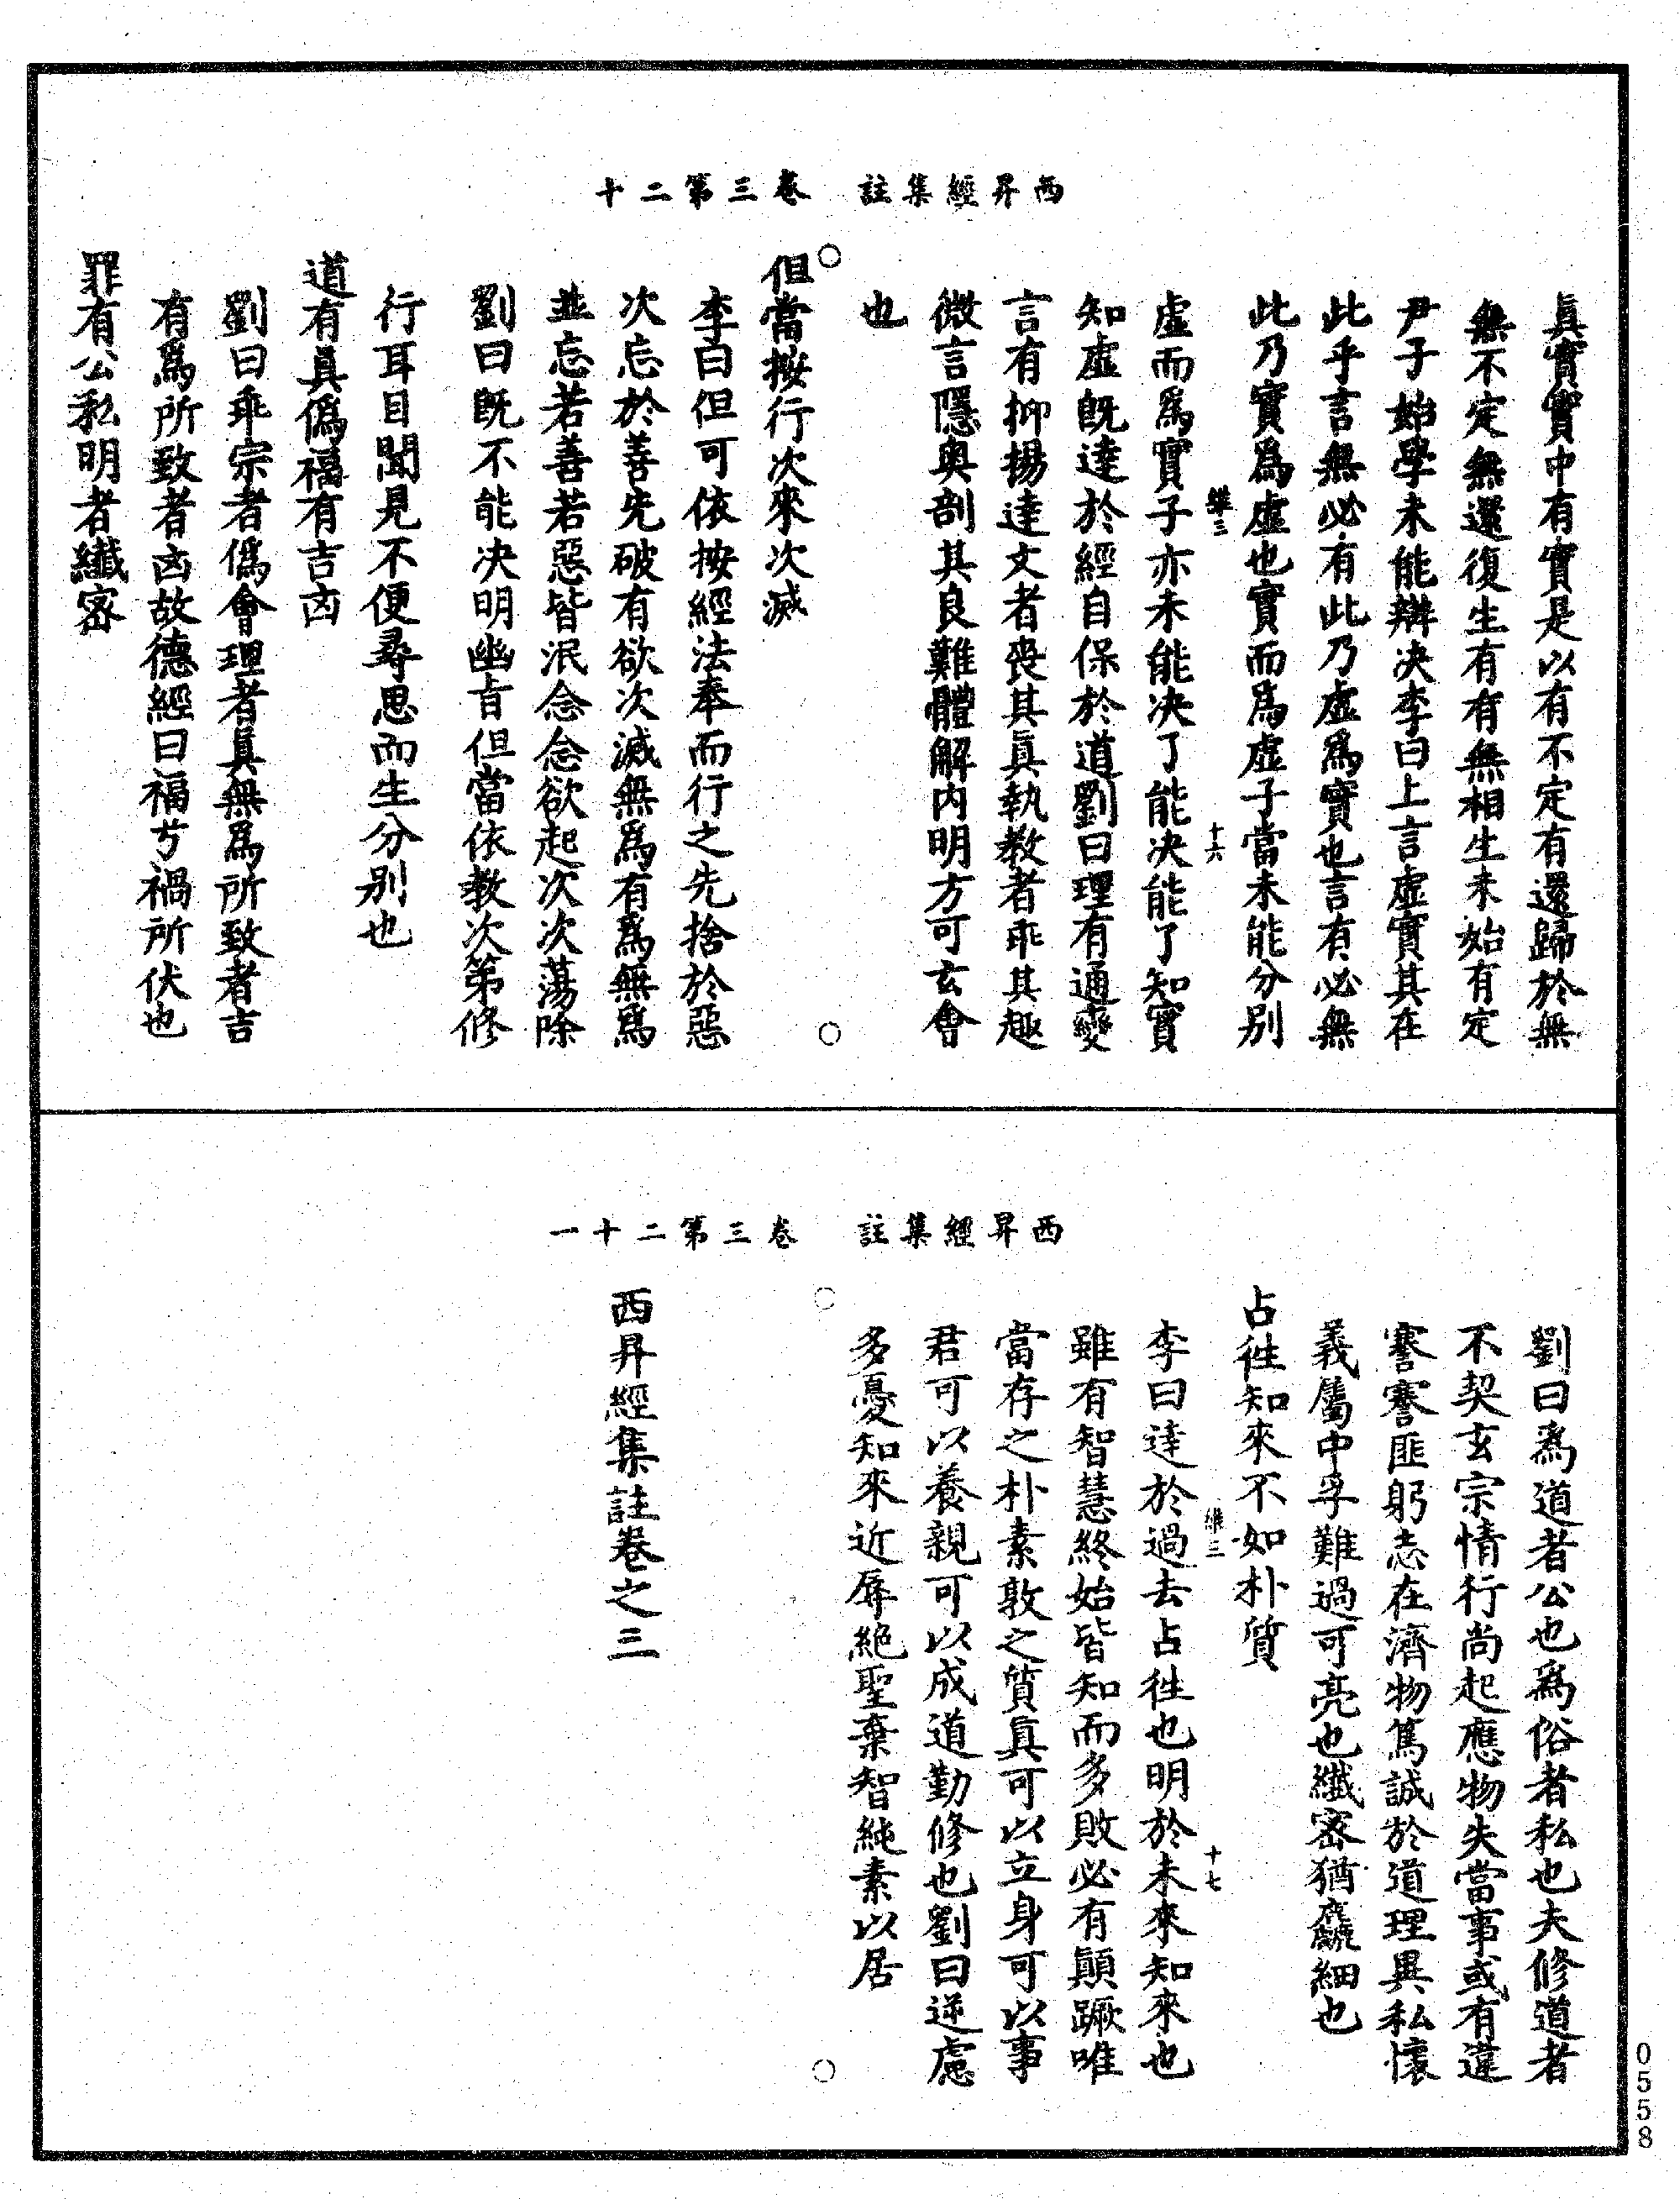 西昇經集註 卷三第二十
真實實中有實是以有不定有還歸於無
無不定無還復生有有無相生未始有定
尹子始學未能辯决李曰上言虛實其在
此乎言無必有此乃虛爲實也言有必無
此乃實爲虛也實而爲虛子當未能分别
維三 十六
虛而爲實子亦未能决了能决能了知實
知虛旣達於經自保於道劉曰理有通變
言有抑揚達文者喪其真執教者乖其趣
微言隱奥剖其良難體解内明方可玄會
也
但當按行次來次滅
李曰但可依按經法奉而行之先捨於惡
次忘於善先破有欲次滅無爲有爲無爲
並忘若善若惡皆泯念念欲起次次蕩除
劉曰旣不能决明幽旨但當依教次第修
行耳目聞見不便尋思而生分别也
道有真僞福有吉凶
劉曰乖宗者僞會理者真無爲所致者吉
有爲所致者凶故德經曰福兮禍所伏也
罪有公私明者纖密
西昇經集註 卷三第二十一
劉曰爲道者公也爲俗者私也夫修道者
不契玄宗情行尚起應物失當事或有違
謇謇匪躬志在濟物篤誠於道理異私懷
義屬中孚難過可亮也纖密猶麤細也
占往知來不如朴質
維三 十七
李曰達於過去占往也明於未來知來也
雖有智慧終始皆知而多敗必有顛蹶唯
當存之朴素敦之質真可以立身可以事
君可以養親可以成道勤修也劉曰逆慮
多憂知來近辱絶聖棄智純素以居
西昇經集註卷之三
0558